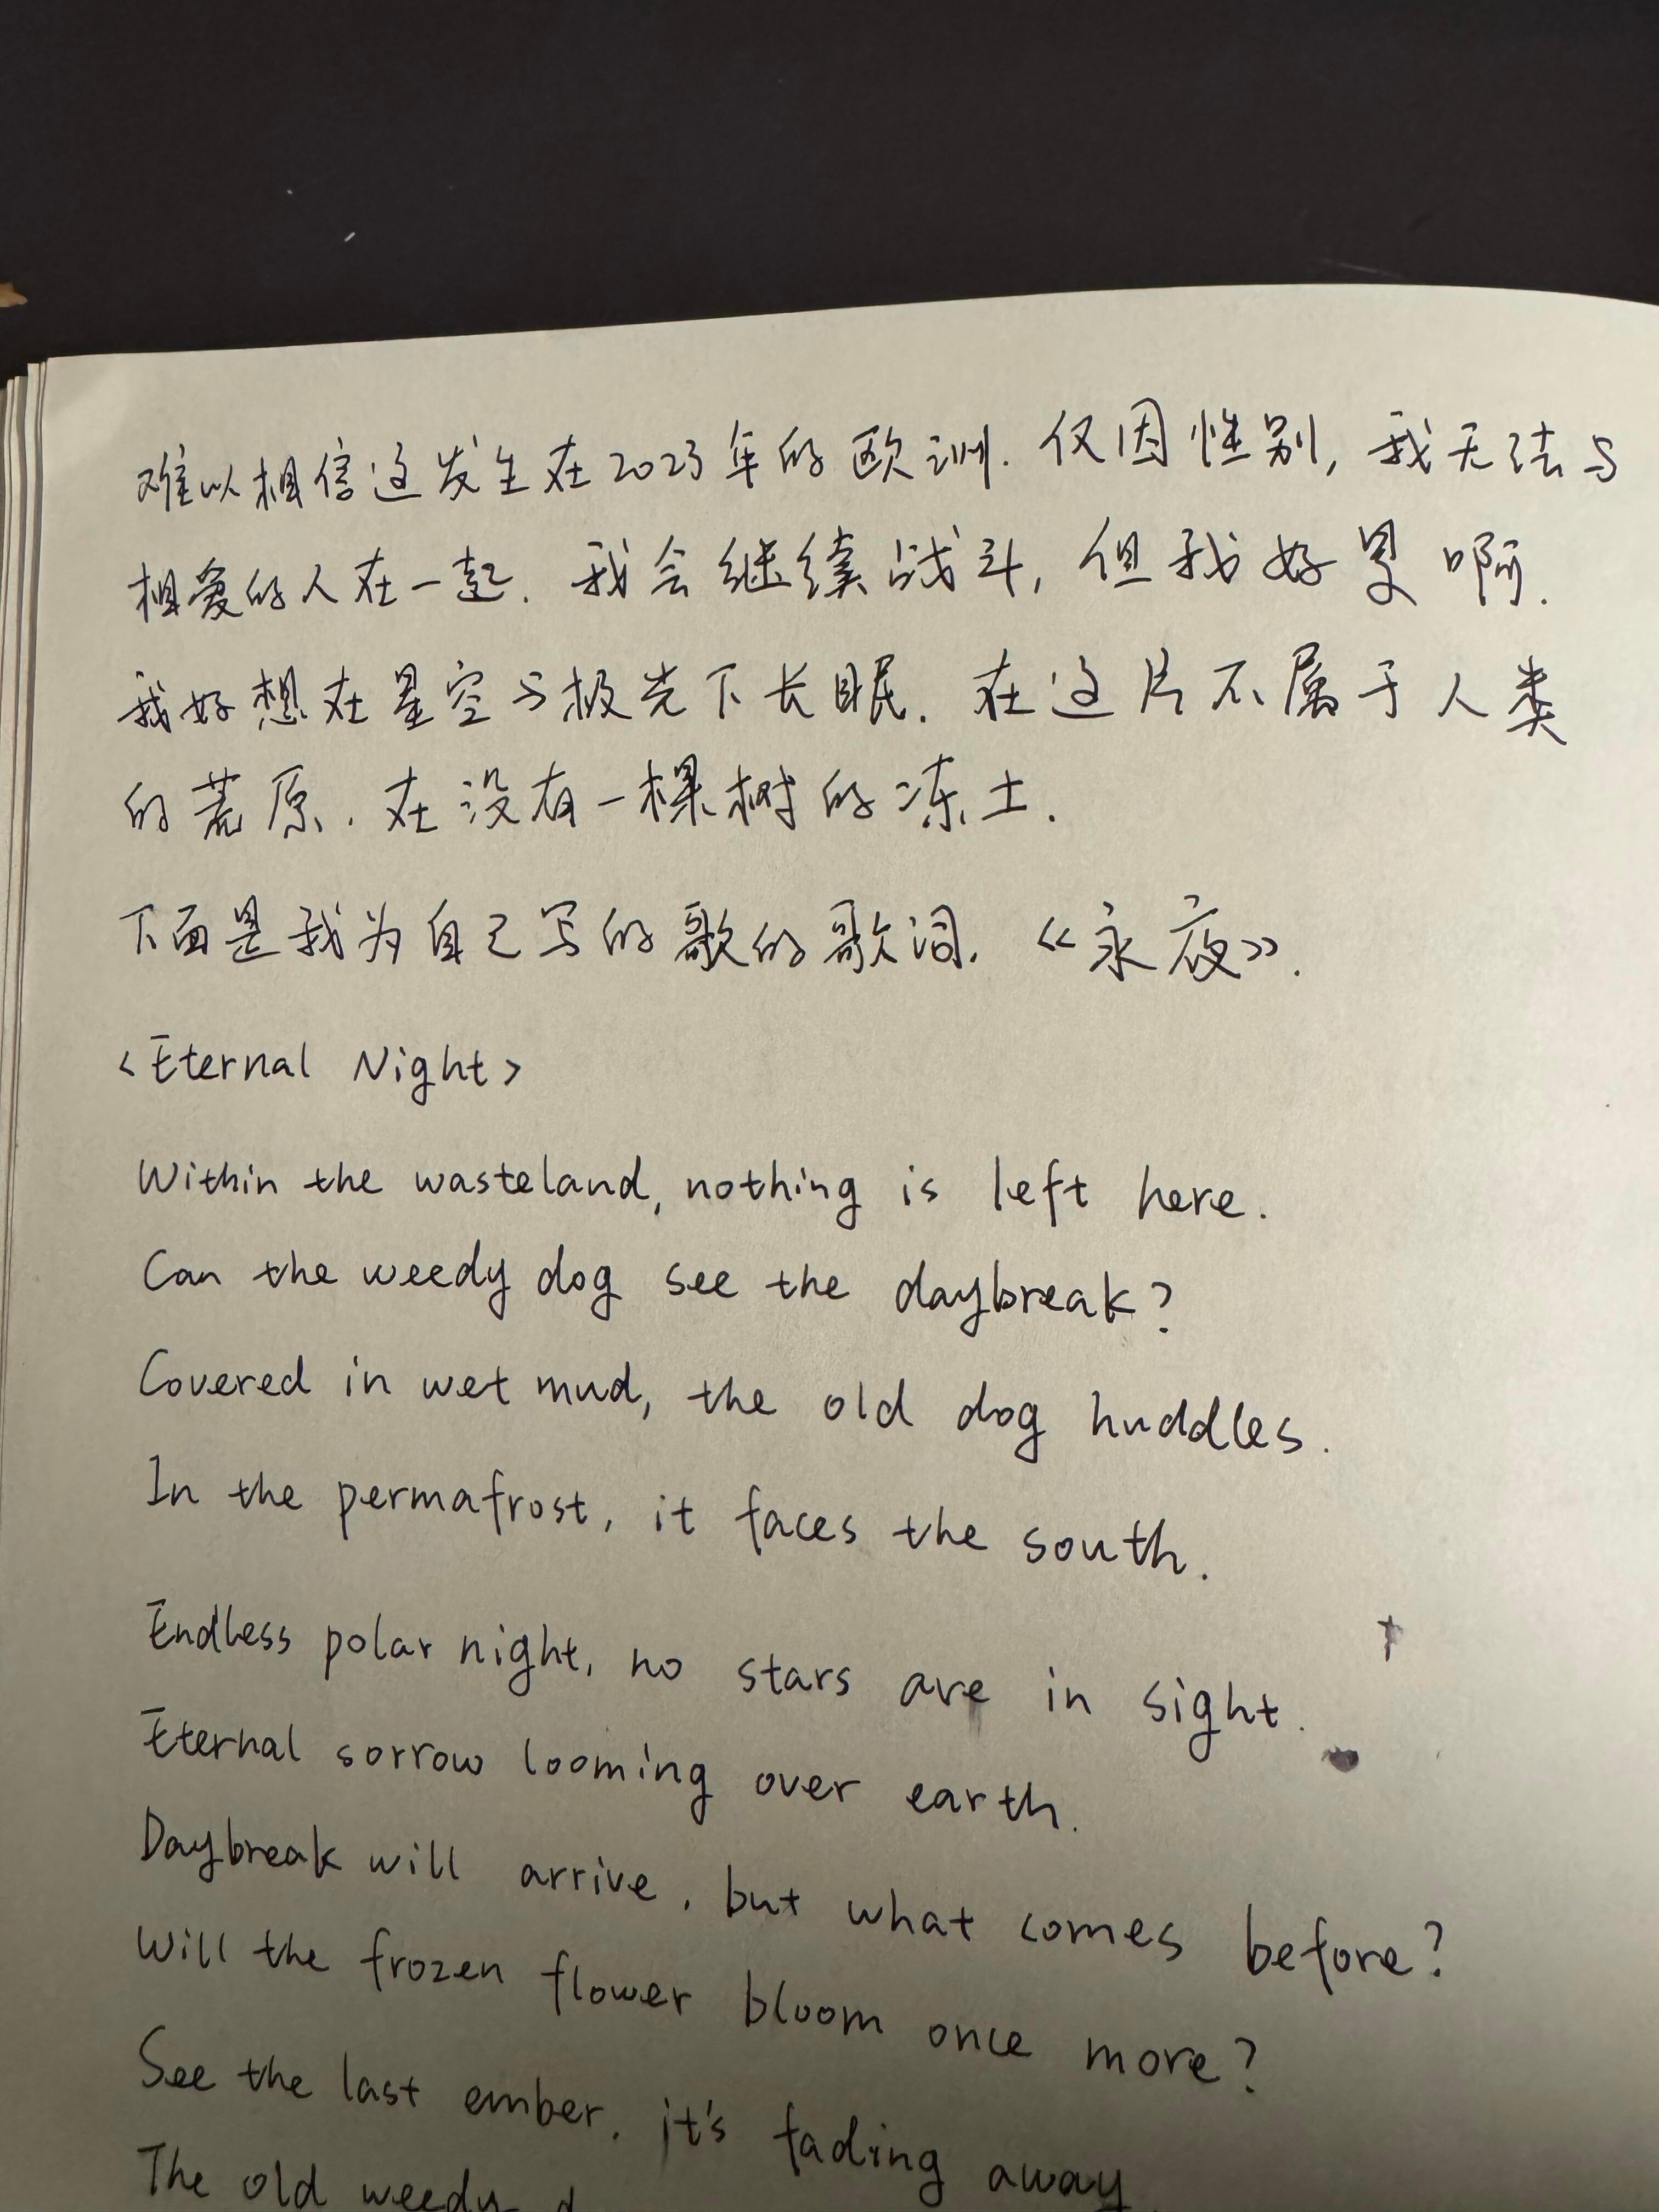 难以相信这发生在2023年的欧洲. 仅因性别, 我无法与
相爱的人在一起. 我会继续战斗, 但我好累啊.
我好想在星空与极光下长眠. 在这片不属于人类
的荒原. 在没有一棵树的冻土.
下面是我为自己写的歌的歌词. 《永夜》.
<Eternal Night>
Within the wasteland, nothing is left here.
Can the weedy dog see the daybreak?
Covered in wet mud, the old dog huddles.
In the permafrost, it faces the south.
Endless polar night, no stars are in sight.
Eternal sorrow looming over earth.
Daybreak will arrive, but what comes before?
Will the frozen flower bloom once more?
See the last ember, it's fading away.
The old weedy